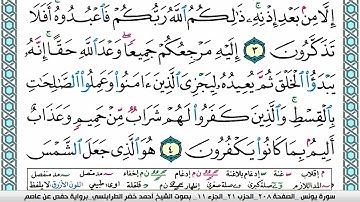 إِلَّا مِنۢ بَعْدِ إِذْنِهِۦ ۚ ذَٰلِكُمُ ٱللَّهُ رَبُّكُمْ فَٱعْبُدُوهُ ۚ أَفَلَا
تَذَكَّرُونَ ٣ إِلَيْهِ مَرْجِعُكُمْ جَمِيعًا ۖ وَعْدَ ٱللَّهِ حَقًّا ۚ إِنَّهُۥ
يَبْدَؤُا۟ ٱلْخَلْقَ ثُمَّ يُعِيدُهُۥ لِيَجْزِىَ ٱلَّذِينَ ءَامَنُوا۟ وَعَمِلُوا۟ ٱلصَّٰلِحَٰتِ
بِٱلْقِسْطِ ۚ وَٱلَّذِينَ كَفَرُوا۟ لَهُمْ شَرَابٌ مِّنْ حَمِيمٍ وَعَذَابٌ
أَلِيمٌۢ بِمَا كَانُوا۟ يَكْفُرُونَ ٤ هُوَ ٱلَّذِى جَعَلَ ٱلشَّمْسَ
سورة يونس . الصفحة ٢٠٨ . الحزب ٢١ . الجزء ١١ . بصوت الشيخ أحمد خضر الطرابلسي . برواية حفص عن عاصم